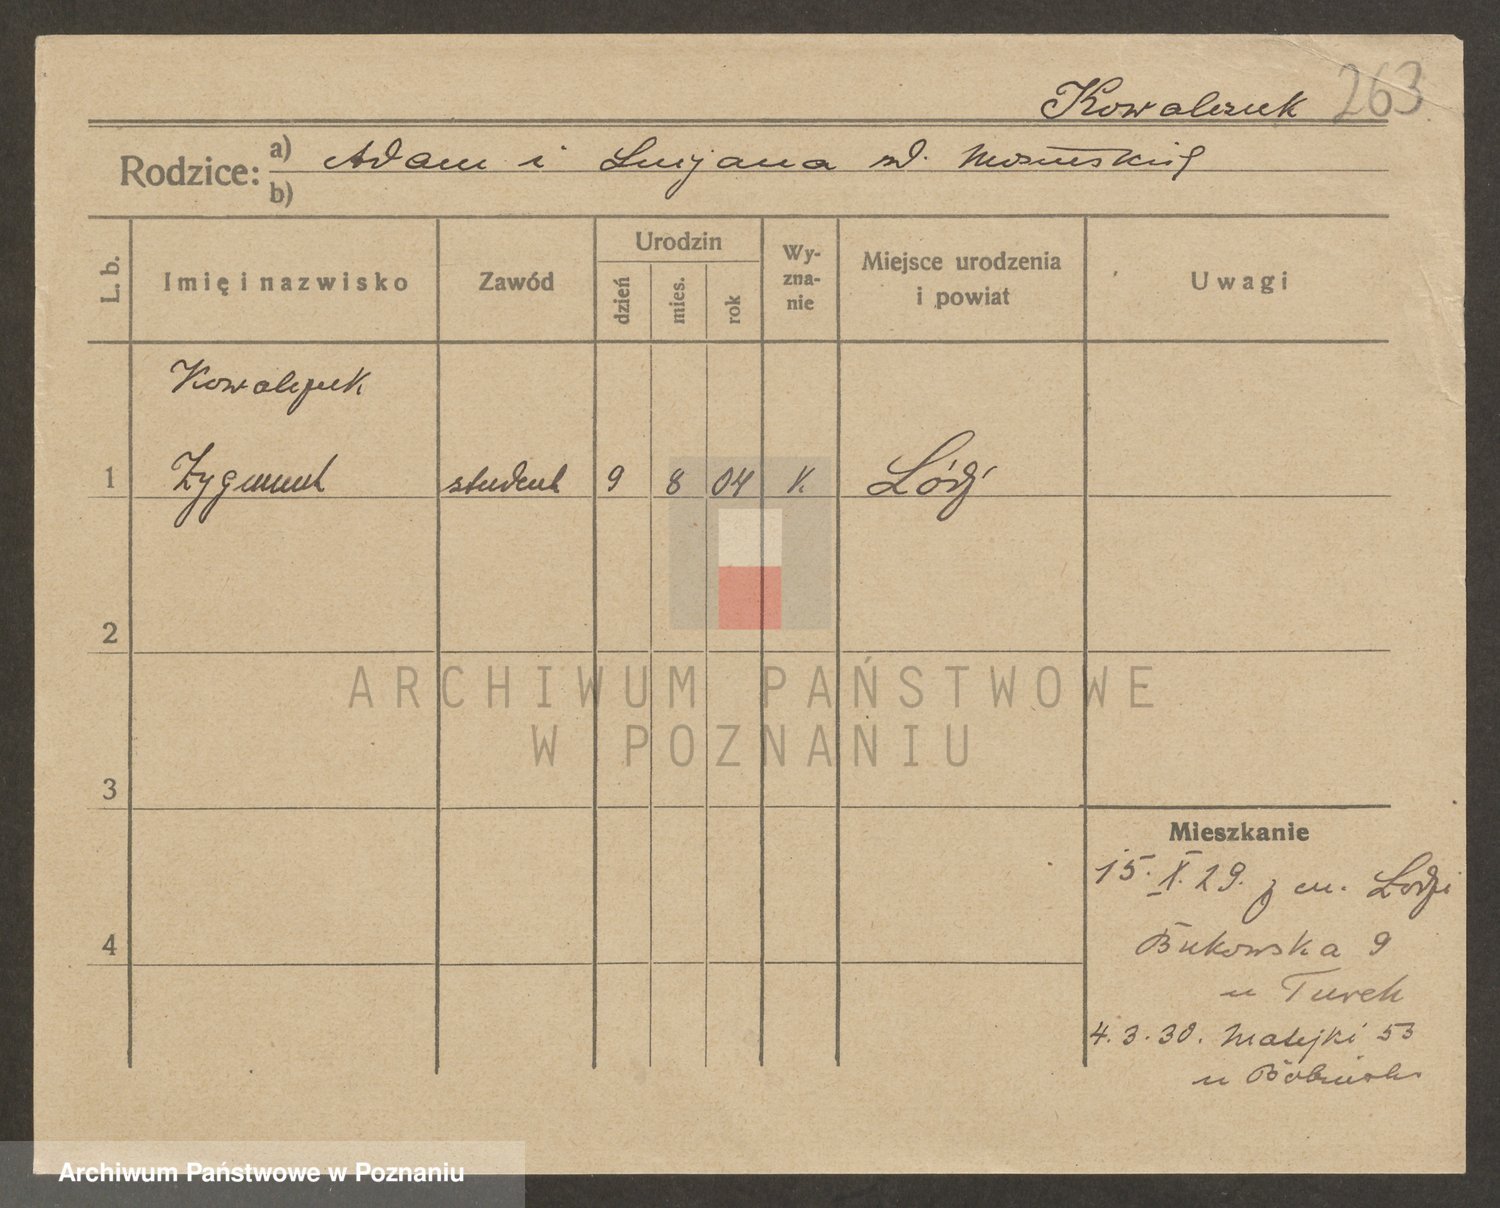 Kowalczuk 263
Rodzice: a) Adam i Lucjana
b)
L. b. Imię i nazwisko Zawód Urodzin dzień mies. rok Wy-zna-nie Miejsce urodzenia i powiat Uwagi
Kowalczuk
1 Zygmunt student 9 8 04 K. Łódź
2
3
4
Mieszkanie
15. X. 29. z m. Łodzi
Bukowska 9
u Turek
4. 3. 30. Matejki 53
u
ARCHIWUM PAŃSTWOWE
W POZNANIU
Archiwum Państwowe w Poznaniu